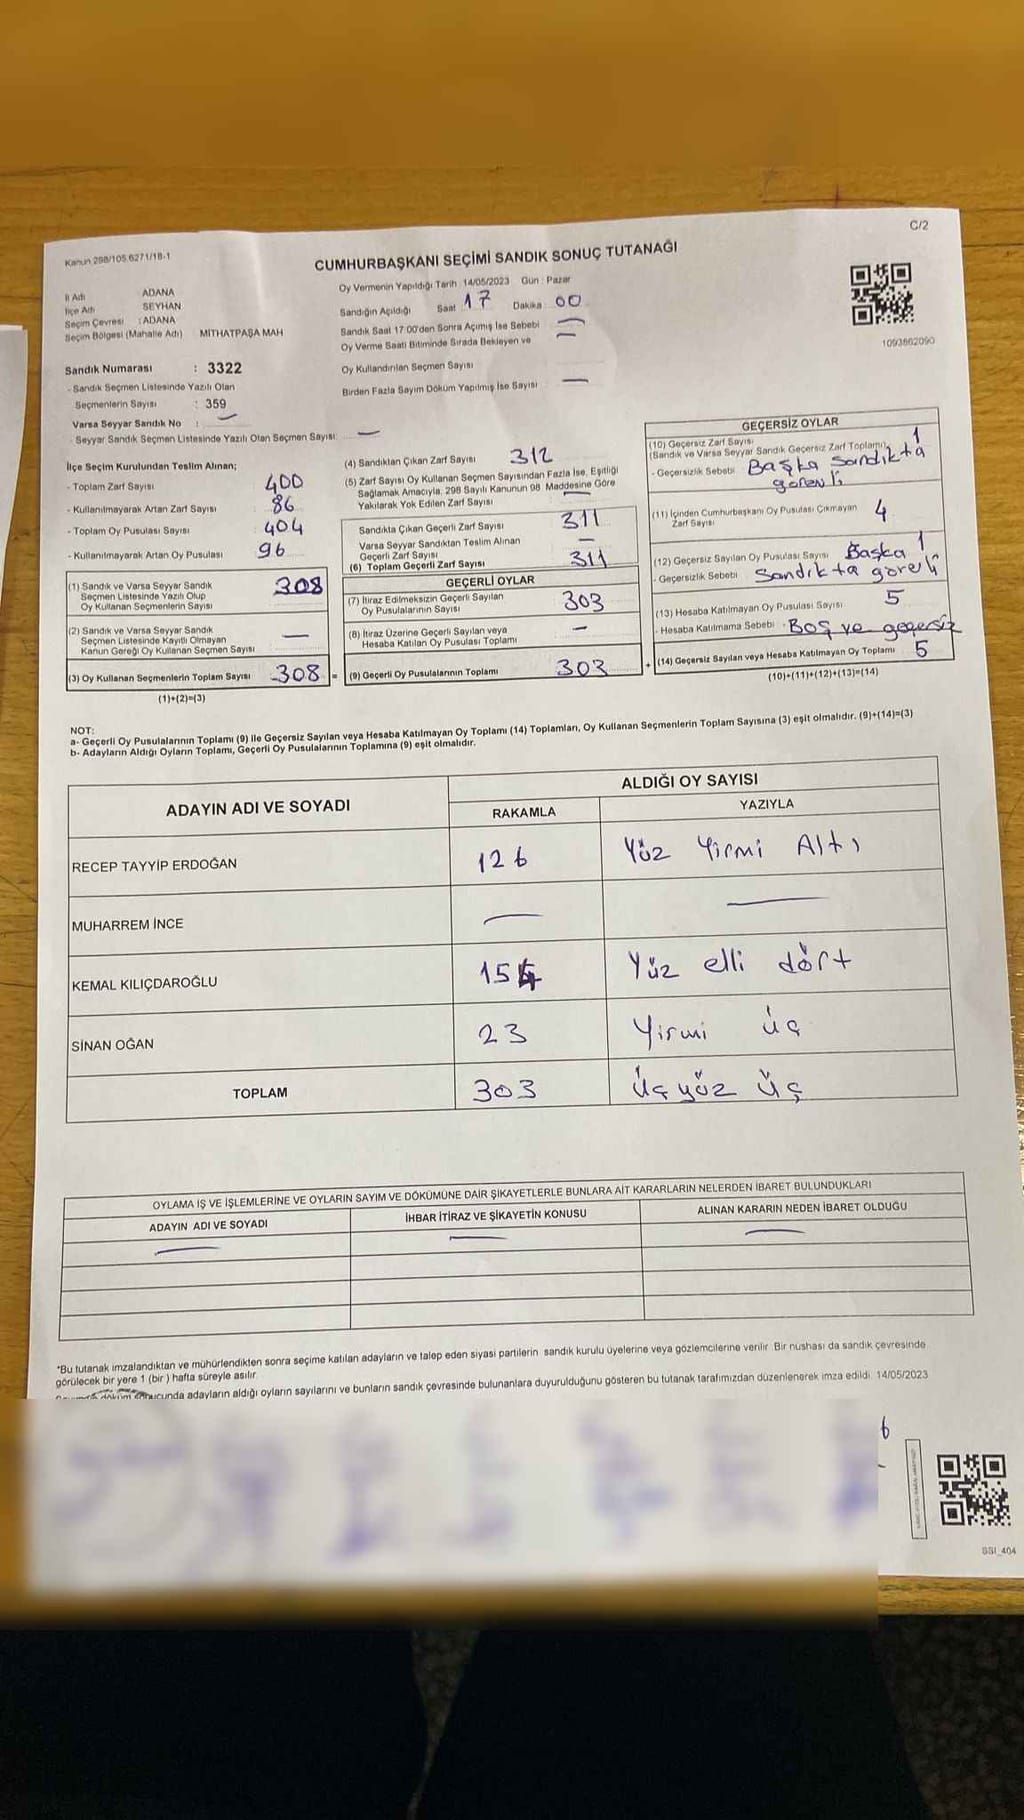 C/2
Kanun 298/105 6271/18-1
CUMHURBAŞKANI SEÇİMİ SANDIK SONUÇ TUTANAĞI
Oy Vermenin Yapıldığı Tarih 14/05/2023 Gün : Pazar
İl Adı : ADANA
İlçe Adı SEYHAN
Seçim Çevresi : ADANA
Seçim Bölgesi (Mahalle Adı) MİTHATPAŞA MAH
Sandığın Açıldığı Saat 17 Dakika 00
Sandık Saat 17:00'den Sonra Açımış İse Sebebi —
Oy Verme Saati Bitiminde Sırada Bekleyen ve —
Oy Kullandırılan Seçmen Sayısı
Birden Fazla Sayım Döküm Yapılmış İse Sayısı —
1093862090
Sandık Numarası : 3322
- Sandık Seçmen Listesinde Yazılı Olan
Seçmenlerin Sayısı : 359
Varsa Seyyar Sandık No : —
- Seyyar Sandık Seçmen Listesinde Yazılı Olan Seçmen Sayısı: —
İlçe Seçim Kurulundan Teslim Alınan;
- Toplam Zarf Sayısı 400
- Kullanılmayarak Artan Zarf Sayısı 86
- Toplam Oy Pusulası Sayısı 404
- Kullanılmayarak Artan Oy Pusulası 96
(1) Sandık ve Varsa Seyyar Sandık
Seçmen Listesinde Yazılı Olup
Oy Kullanan Seçmenlerin Sayısı 308
(2) Sandık ve Varsa Seyyar Sandık
Seçmen Listesinde Kayıtlı Olmayan
Kanun Gereği Oy Kullanan Seçmen Sayısı —
(3) Oy Kullanan Seçmenlerin Toplam Sayısı 308 =
(1)+(2)=(3)
(4) Sandıktan Çıkan Zarf Sayısı 312
(5) Zarf Sayısı Oy Kullanan Seçmen Sayısından Fazla İse, Eşitliği
Sağlamak Amacıyla, 298 Sayılı Kanunun 98. Maddesine Göre
Yakılarak Yok Edilen Zarf Sayısı —
Sandıkta Çıkan Geçerli Zarf Sayısı 311
Varsa Seyyar Sandıktan Teslim Alınan
Geçerli Zarf Sayısı —
(6) Toplam Geçerli Zarf Sayısı 311
GEÇERLİ OYLAR
(7) İtiraz Edilmeksizin Geçerli Sayılan
Oy Pusulalarının Sayısı 303
(8) İtiraz Üzerine Geçerli Sayılan veya
Hesaba Katılan Oy Pusulası Toplamı —
(9) Geçerli Oy Pusulalarının Toplamı 303 +
GEÇERSİZ OYLAR
(10) Geçersiz Zarf Sayısı 1
(Sandık ve Varsa Seyyar Sandık Geçersiz Zarf Toplamı)
- Geçersizlik Sebebi Başka Sandıkta
görevli
(11) İçinden Cumhurbaşkanı Oy Pusulası Çıkmayan
Zarf Sayısı 4
(12) Geçersiz Sayılan Oy Pusulası Sayısı Başka 1
- Geçersizlik Sebebi Sandıkta görevli
(13) Hesaba Katılmayan Oy Pusulası Sayısı 5
- Hesaba Katılmama Sebebi Boş ve geçersiz
(14) Geçersiz Sayılan veya Hesaba Katılmayan Oy Toplamı 5
(10)+(11)+(12)+(13)=(14)
NOT:
a- Geçerli Oy Pusulalarının Toplamı (9) ile Geçersiz Sayılan veya Hesaba Katılmayan Oy Toplamı (14) Toplamları, Oy Kullanan Seçmenlerin Toplam Sayısına (3) eşit olmalıdır. (9)+(14)=(3)
b- Adayların Aldığı Oyların Toplamı, Geçerli Oy Pusulalarının Toplamına (9) eşit olmalıdır.
ADAYIN ADI VE SOYADI ALDIĞI OY SAYISI
RAKAMLA YAZIYLA
RECEP TAYYİP ERDOĞAN 126 Yüz Yirmi Altı
MUHARREM İNCE — —
KEMAL KILIÇDAROĞLU 154 Yüz elli dört
SİNAN OĞAN 23 Yirmi üç
TOPLAM 303 Üçyüz üç
OYLAMA İŞ VE İŞLEMLERİNE VE OYLARIN SAYIM VE DÖKÜMÜNE DAİR ŞİKAYETLERLE BUNLARA AİT KARARLARIN NELERDEN İBARET BULUNDUKLARI
ADAYIN ADI VE SOYADI İHBAR İTİRAZ VE ŞİKAYETİN KONUSU ALINAN KARARIN NEDEN İBARET OLDUĞU
— — —
*Bu tutanak imzalandıktan ve mühürlendikten sonra seçime katılan adayların ve talep eden siyasi partilerin sandık kurulu üyelerine veya gözlemcilerine verilir. Bir nüshası da sandık çevresinde
görülecek bir yere 1 (bir) hafta süreyle asılır.
döküm sonucunda adayların aldığı oyların sayılarını ve bunların sandık çevresinde bulunanlara duyurulduğunu gösteren bu tutanak tarafımızdan düzenlenerek imza edildi. 14/05/2023
SSI_404